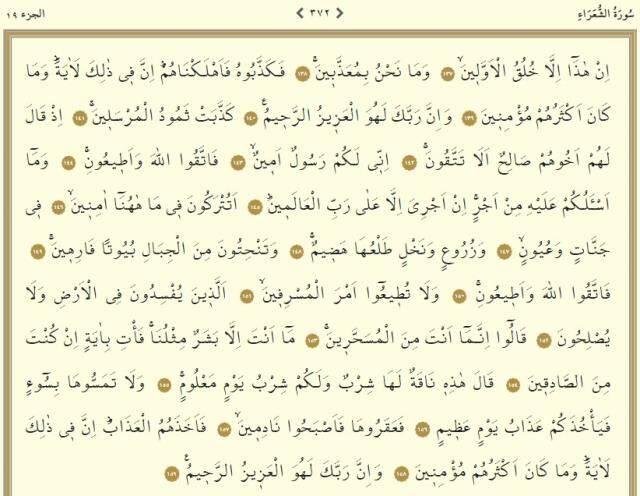 سُورَةُ الشُّعَرَاءِ ❮ ٣٧٢ ❯ الجزء ١٩
اِنْ هٰذَٓا اِلَّا خُلُقُ الْاَوَّل۪ينَۙ ﴿١٣٧﴾ وَمَا نَحْنُ بِمُعَذَّب۪ينَۚ ﴿١٣٨﴾ فَكَذَّبُوهُ فَاَهْلَكْنَاهُمْۜ اِنَّ ف۪ي ذٰلِكَ لَاٰيَةًۜ وَمَا
كَانَ اَكْثَرُهُمْ مُؤْمِن۪ينَ ﴿١٣٩﴾ وَاِنَّ رَبَّكَ لَهُوَ الْعَز۪يزُ الرَّح۪يمُ۟ ﴿١٤٠﴾ كَذَّبَتْ ثَمُودُ الْمُرْسَل۪ينَۚ ﴿١٤١﴾ اِذْ قَالَ
لَهُمْ اَخُوهُمْ صَالِحٌ اَلَا تَتَّقُونَۚ ﴿١٤٢﴾ اِنّ۪ي لَكُمْ رَسُولٌ اَم۪ينٌۙ ﴿١٤٣﴾ فَاتَّقُوا اللّٰهَ وَاَط۪يعُونِۚ ﴿١٤٤﴾ وَمَٓا
اَسْـَٔلُكُمْ عَلَيْهِ مِنْ اَجْرٍۚ اِنْ اَجْرِيَ اِلَّا عَلٰى رَبِّ الْعَالَم۪ينَۜ ﴿١٤٥﴾ اَتُتْرَكُونَ ف۪ي مَا هٰهُنَٓا اٰمِن۪ينَۙ ﴿١٤٦﴾ ف۪ي
جَنَّاتٍ وَعُيُونٍۙ ﴿١٤٧﴾ وَزُرُوعٍ وَنَخْلٍ طَلْعُهَا هَض۪يمٌۚ ﴿١٤٨﴾ وَتَنْحِتُونَ مِنَ الْجِبَالِ بُيُوتًا فَارِه۪ينَۚ ﴿١٤٩﴾
فَاتَّقُوا اللّٰهَ وَاَط۪يعُونِۚ ﴿١٥٠﴾ وَلَا تُط۪يعُٓوا اَمْرَ الْمُسْرِف۪ينَۙ ﴿١٥١﴾ اَلَّذ۪ينَ يُفْسِدُونَ فِي الْاَرْضِ وَلَا
يُصْلِحُونَ ﴿١٥٢﴾ قَالُٓوا اِنَّمَٓا اَنْتَ مِنَ الْمُسَحَّر۪ينَۚ ﴿١٥٣﴾ مَٓا اَنْتَ اِلَّا بَشَرٌ مِثْلُنَاۚ فَأْتِ بِاٰيَةٍ اِنْ كُنْتَ
مِنَ الصَّادِق۪ينَ ﴿١٥٤﴾ قَالَ هٰذِه۪ نَاقَةٌ لَهَا شِرْبٌ وَلَكُمْ شِرْبُ يَوْمٍ مَعْلُومٍۚ ﴿١٥٥﴾ وَلَا تَمَسُّوهَا بِسُٓوءٍ
فَيَأْخُذَكُمْ عَذَابُ يَوْمٍ عَظ۪يمٍ ﴿١٥٦﴾ فَعَقَرُوهَا فَاَصْبَحُوا نَادِم۪ينَۙ ﴿١٥٧﴾ فَاَخَذَهُمُ الْعَذَابُۜ اِنَّ ف۪ي ذٰلِكَ
لَاٰيَةًۜ وَمَا كَانَ اَكْثَرُهُمْ مُؤْمِن۪ينَ ﴿١٥٨﴾ وَاِنَّ رَبَّكَ لَهُوَ الْعَز۪يزُ الرَّح۪يمُ۟ ﴿١٥٩﴾